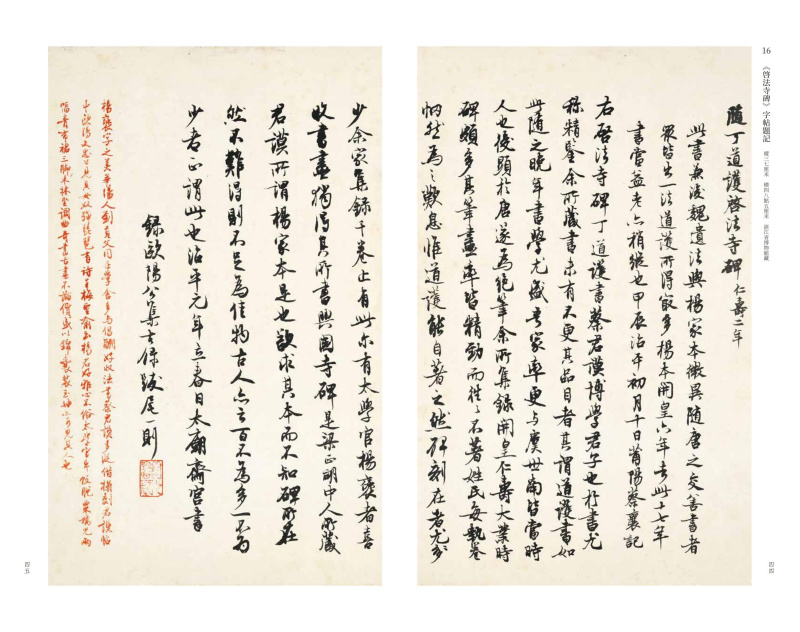 16
《啓法寺碑》字帖題記 縱二七厘米 橫四八點五厘米 浙江省博物館藏
隨丁道護啓法寺碑 仁壽二年
此書兼後魏遺法與楊家本微異隨唐之交善書者
衆皆出一法道護所得㝡多楊本開皇六年去此十七年
書當益老亦稍縱也甲辰治平初月十日莆陽蔡襄記
右啓法寺碑丁道護書蔡君謨博學君子也於書尤
稱精鑒余所藏書未有不更其品目者其謂道護書如
此隨之晚年書學尤盛吾家率更與虞世南皆當時
人也後顯於唐遂為絕筆余所集錄開皇仁壽大業時
碑頗多其筆畫率皆精勁而往々不著姓氏每執卷
惘然為之歎息惟道護能自著之然碑刻在者尤
四四
少余家集錄千卷止有此尔有太學官楊褒者喜
收書畫獨得其所書興國寺碑是梁正明中人所藏
君謨所謂楊家本是也欲求其本而不知碑所在
然不難得則不足為佳物古人亦云百不為多一不為
少者正謂此也治平元年立春日太廟齋宮書
錄歐陽公集古錄跋尾一則
楊褒字之美華陽人劉貢父同在學舍
四五